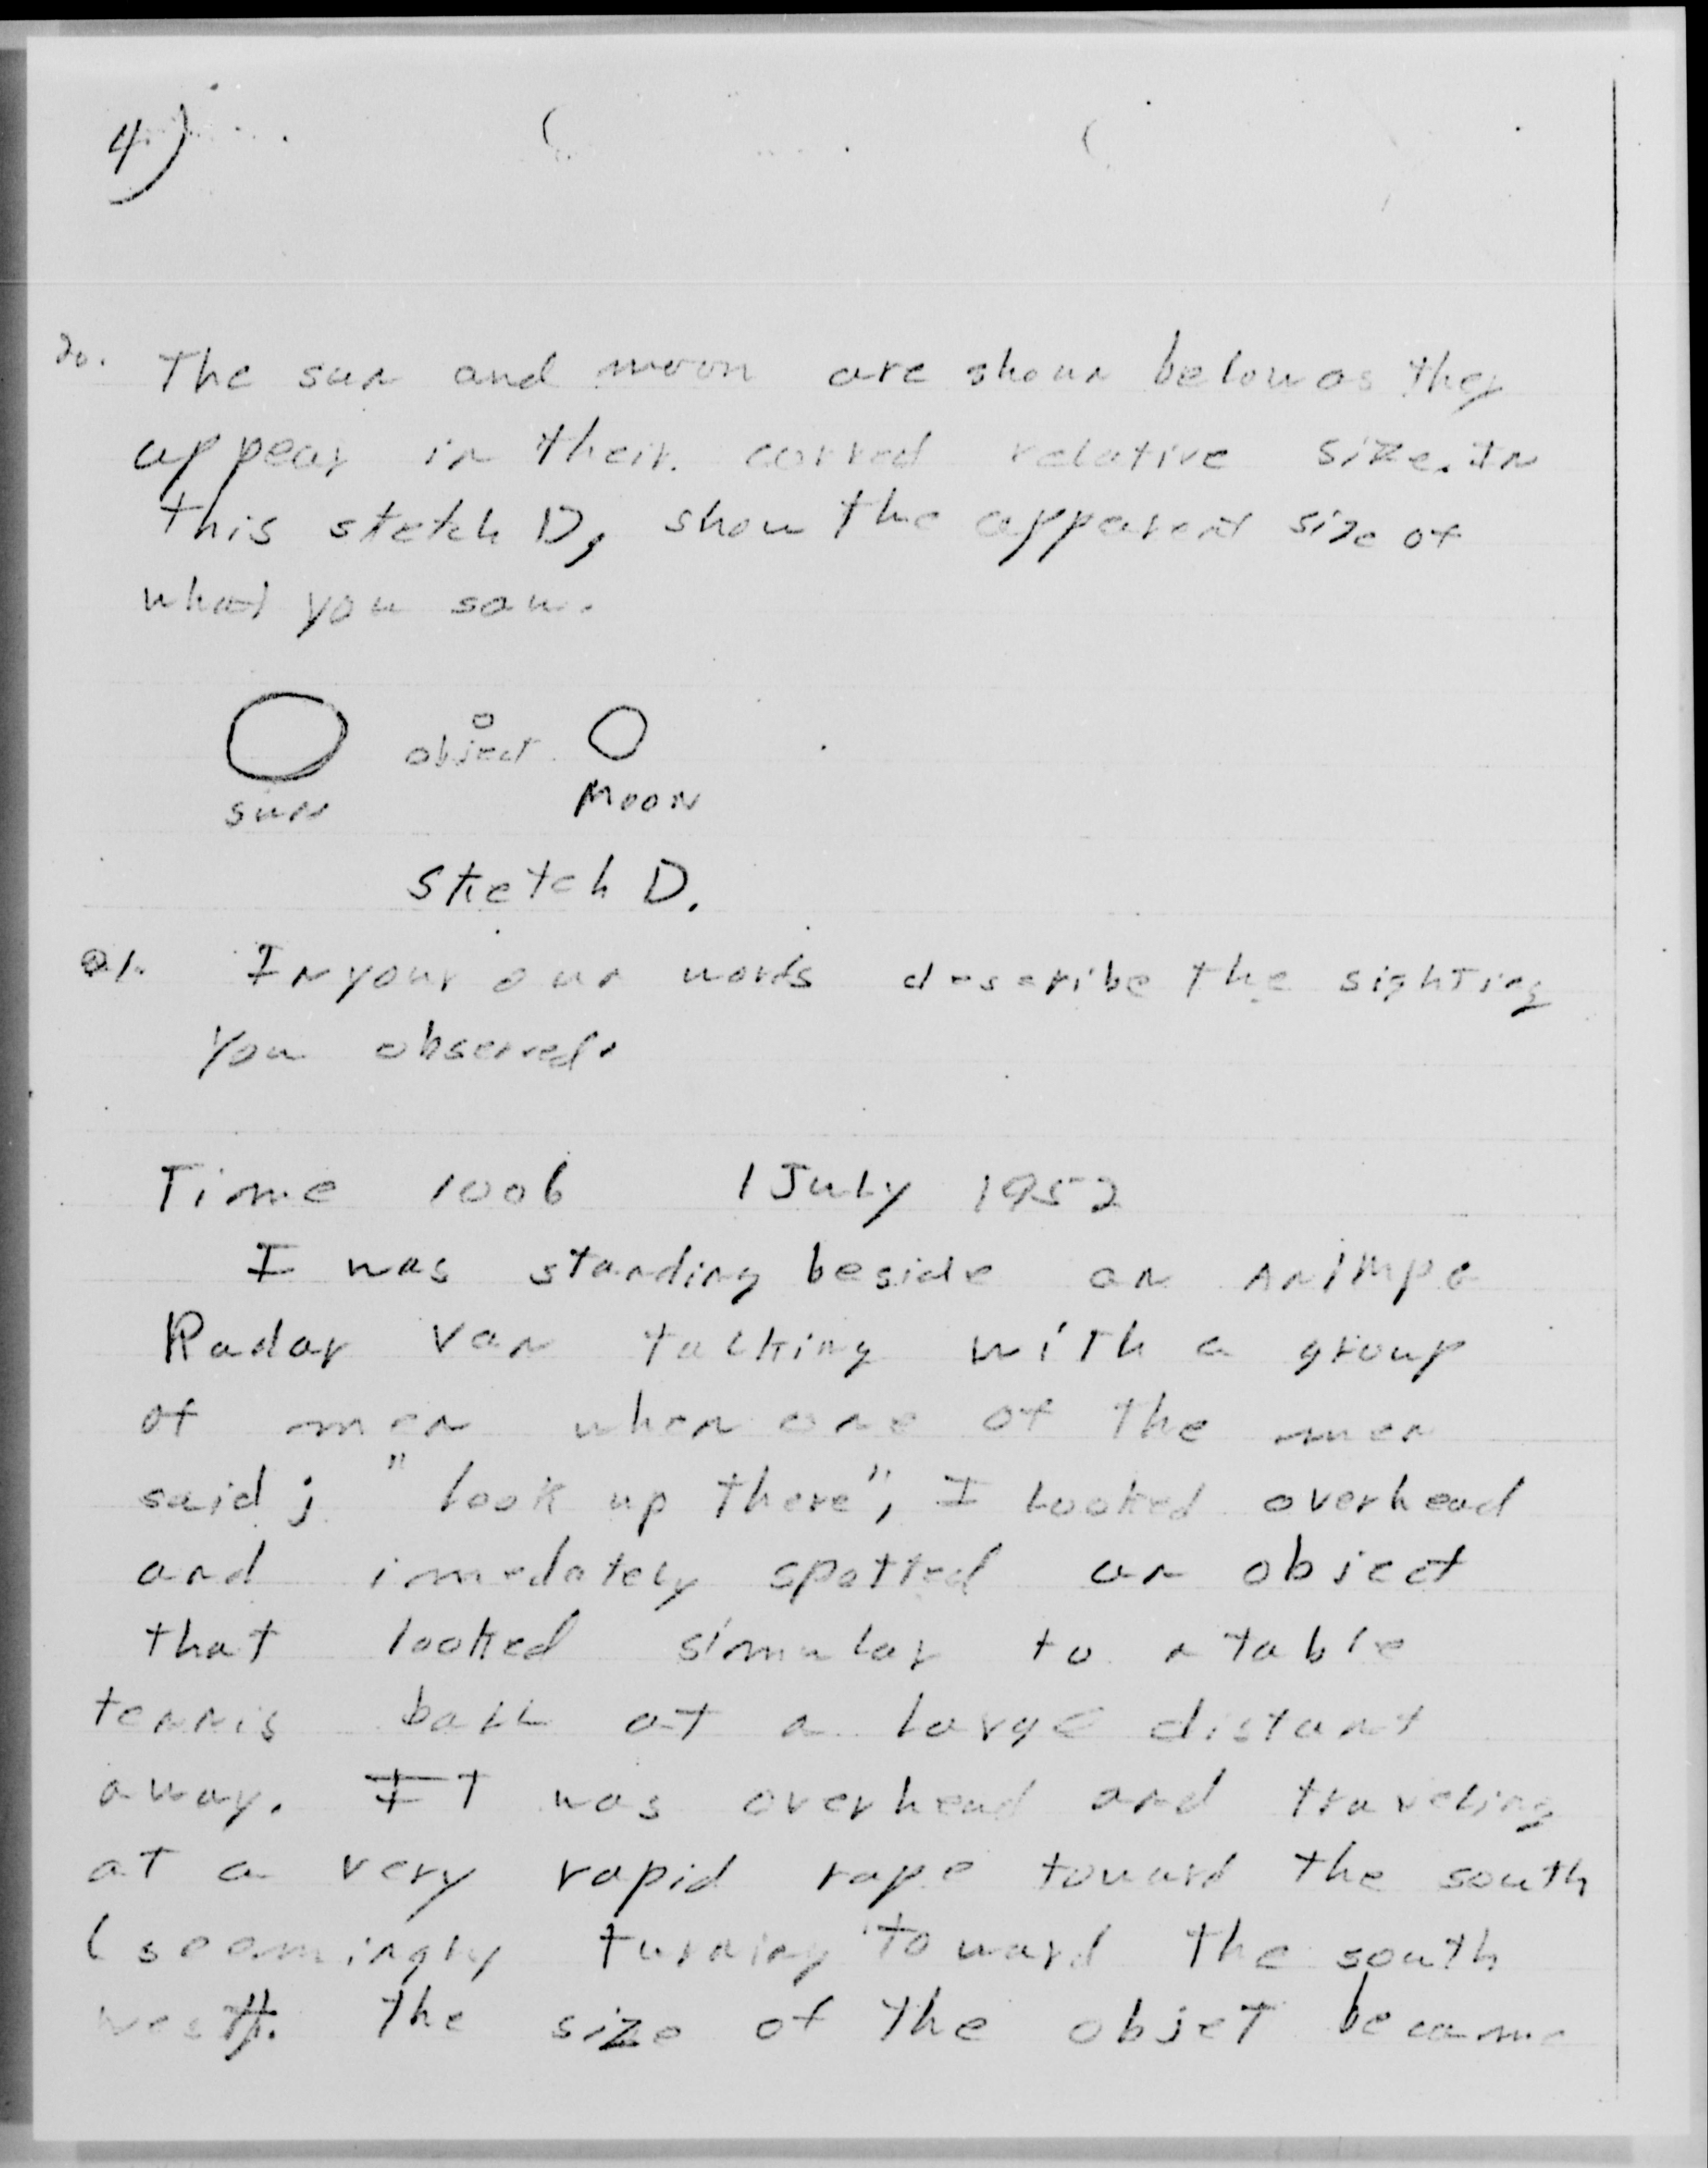 4)
20. The sun and moon are shown below as they
appear in their correct relative size. In
this sketch D, show the apparent size of
what you saw.
object
sun
Moon
sketch D.
21. In your own words describe the sighting
you observed.
Time 1006 1 July 1952
I was standing beside an AN/MPG
Radar Van talking with a group
of men when one of the men
said; "look up there", I looked overhead
and imedately spotted an object
that looked simular to a table
tennis ball at a large distant
away. IT was overhead and traveling
at a very rapid rape toward the south
(seemingly turning toward the south
west). the size of the objeT became